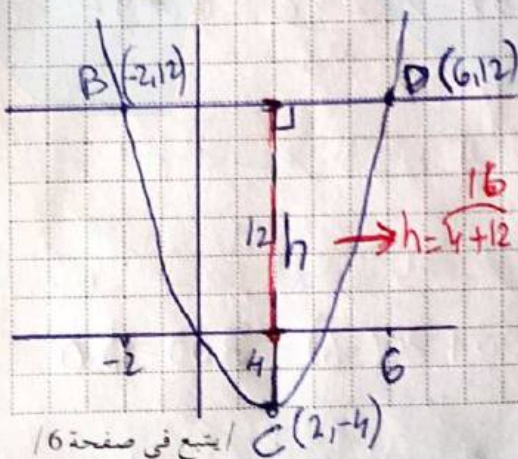 B (-2,12) D (6,12)
16
12 h → h = 4+12
-2 4 6
C (2,-4)
/يتبع في صفحة 6/